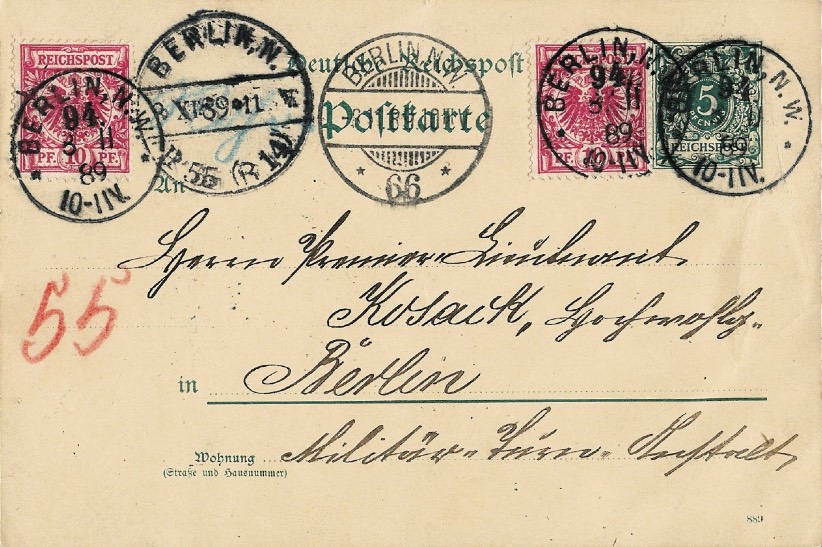 REICHSPOST
PF. 10 PF.
BERLIN, N.W.
94.
3 11
89
10-11V.
BERLIN, N.
XI. 89 * 11
R 55 (R 14)
Deutsche Reichspost
Postkarte
BERLIN N.W.
66
REICHSPOST
PF.
BERLIN, N.W.
94.
3 11
89
10-11V.
5
PFENNIG
REICHSPOST
BERLIN, N.W.
94.
89
10-11V.
An
Herrn Premier-Lieutnant
Kosack, Hochwohlg.
55
in Berlin
Militär-Turn-Anstalt
Wohnung
(Straße und Hausnummer)
889